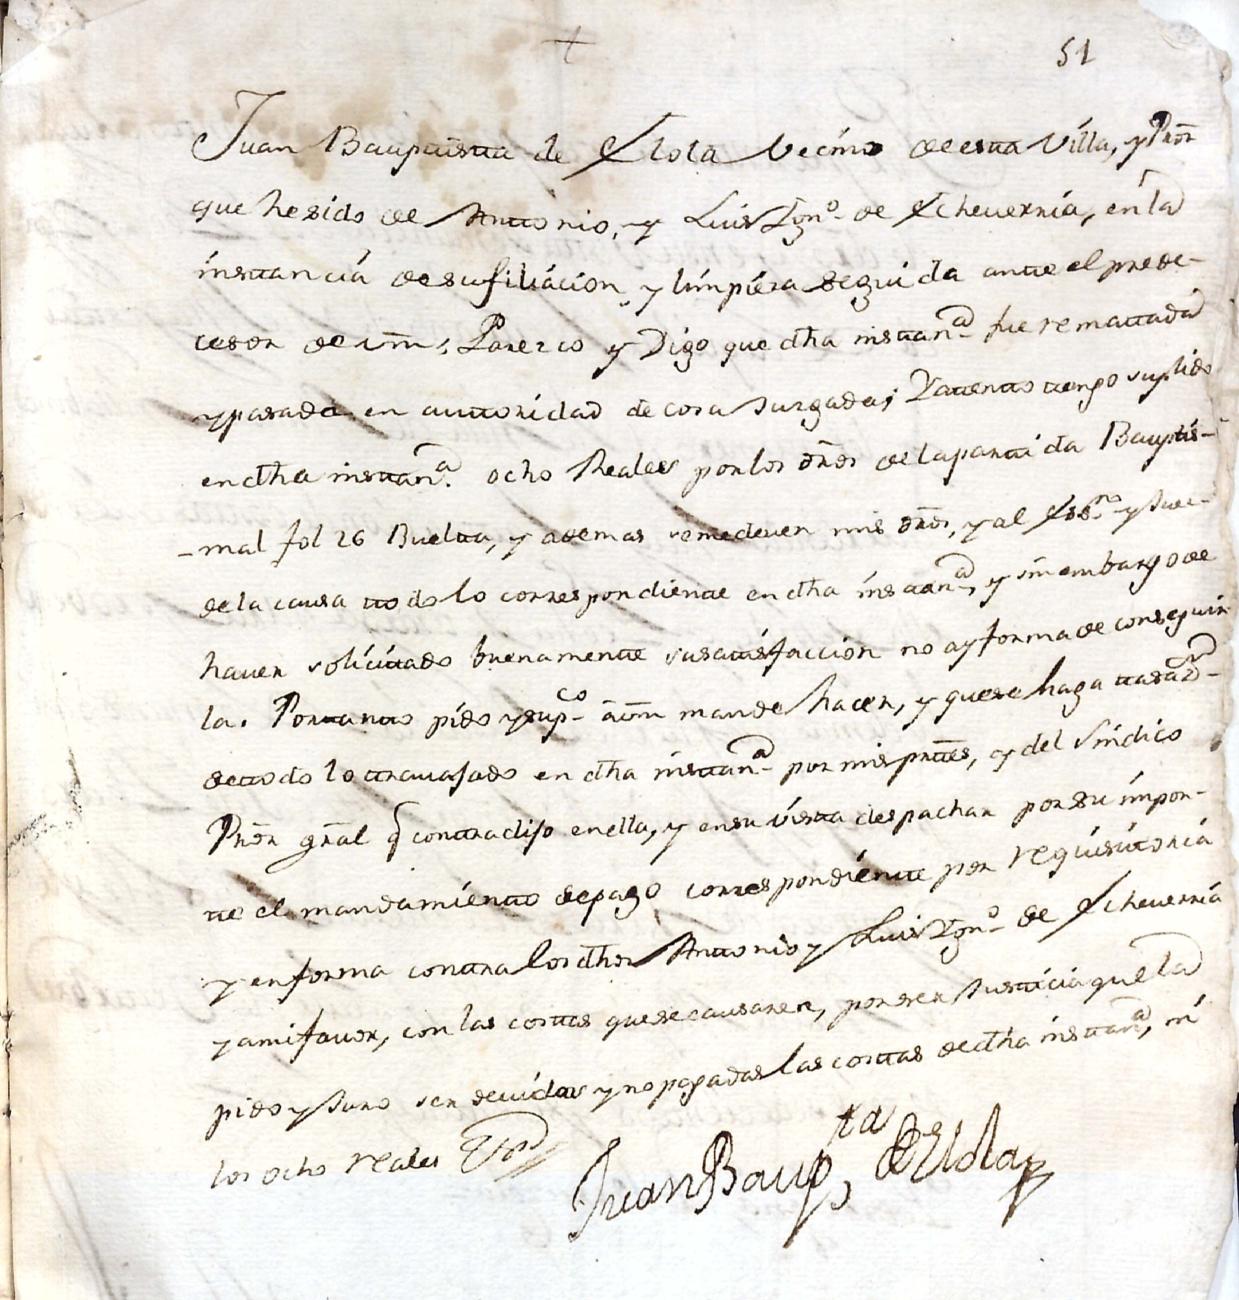 + 51
Juan Bauptista de Elola vecino deesta Villa, y Prōr
que hesido de Antonio, y Luis Ygn.º de Echeverria, en la
instancia desufiliacion, y limpieza seguida ante el prede-
cesor de vm̄; Parezco y Digo que dha instan.ª fue rematada
ypasada en auttoridad de cosa Juzgada; Yatento tengo suplido
endha instan.ª ocho Reales porlos dr̄os delapartida Bauptis-
-mal fol 26 Buelta, y ademas semedeven mis dr̄os, y al Ess.no y Juez
dela causa todo lo correspondiente en dha instan.ª, y sinembargo de
haver solicitado buenamente susatisfaccion no ay forma de conseguir
la. Portanto pido ysup.co avm̄ mande hacer, y quese haga tasaz.n
detodo lo travajado en dha instan.ª por mis prtēs, y del Sindico
Prōr grāl q contradijo enella, y ensu vista despachar por su impor-
te el mandamiento depago correspondiente por requisitoria
y enforma contra los dhos Antonio y Luis Ygn.º de Echeverria
yamifavor, con las costas quese causaren, por ser Justicia que la
pido y Juro ser devidas y no pagadas las costas dedha instan.ª, ni
los ocho reales
Juan Baup.ta de Elola